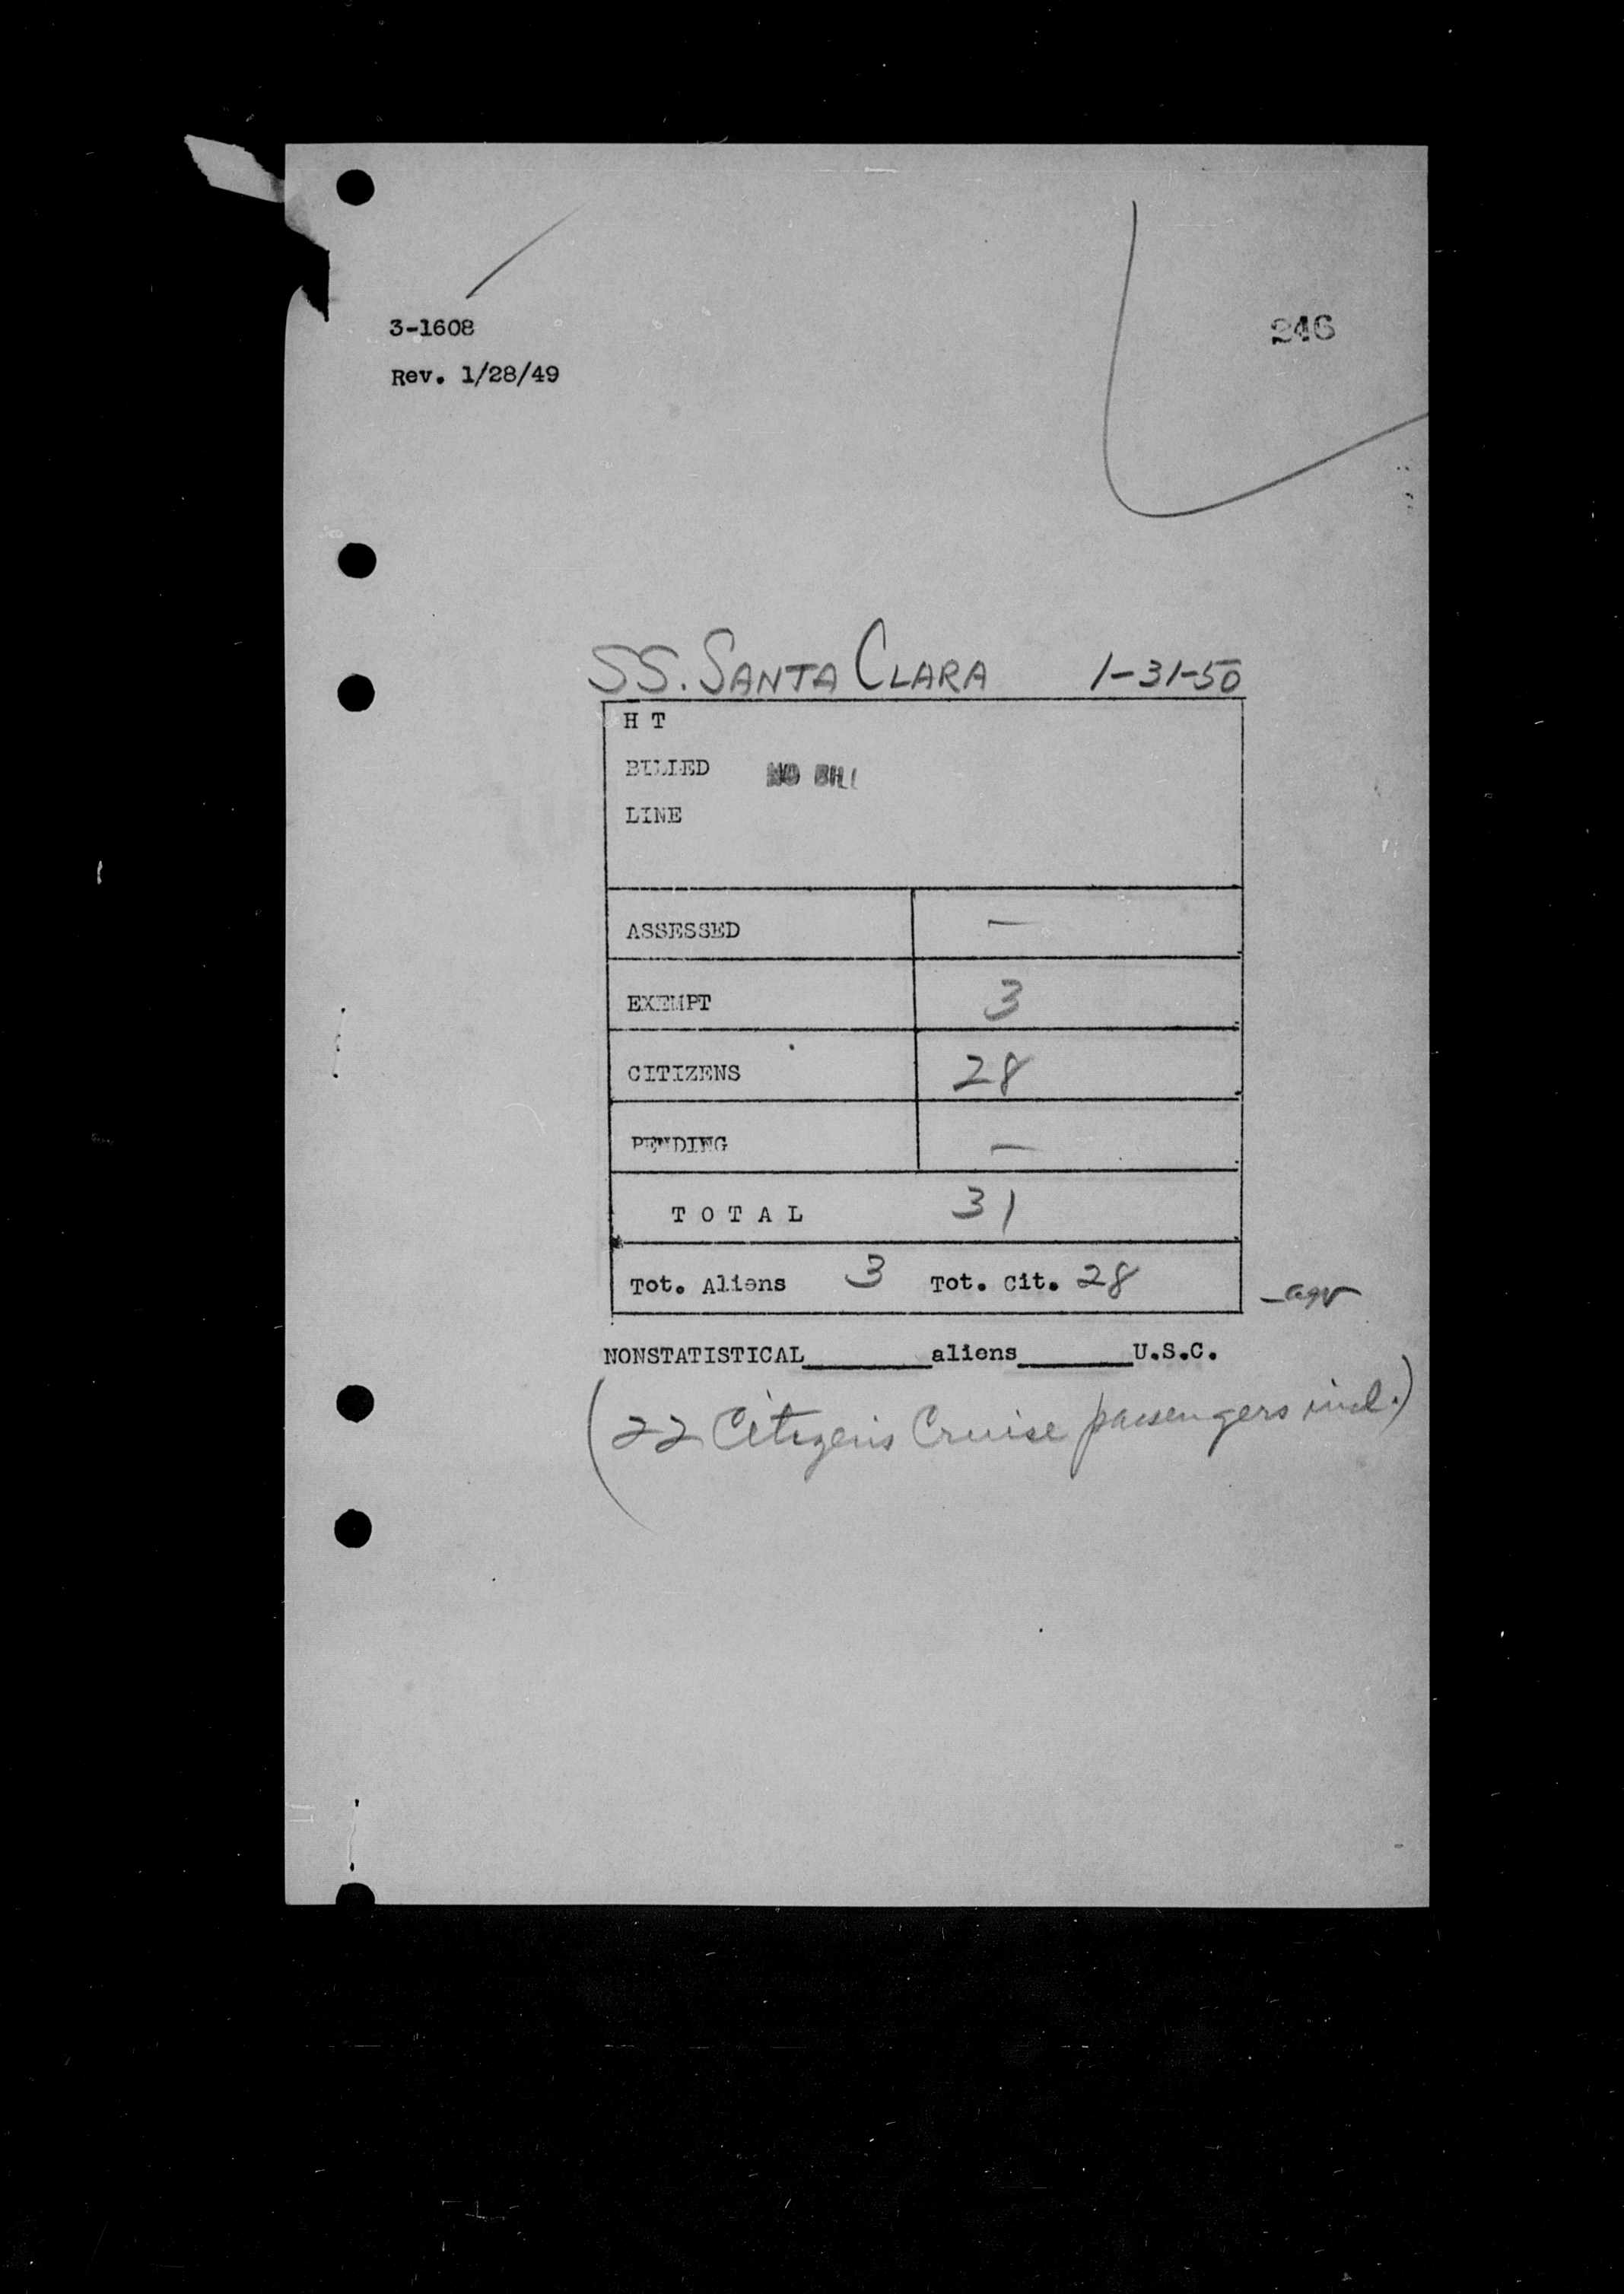 3-1608
246
Rev. 1/28/49
SS. SANTA CLARA 1-31-50
H T
BILLED NO BILL
LINE
ASSESSED —
EXEMPT 3
CITIZENS 28
PENDING —
T O T A L 31
Tot. Aliens 3 Tot. Cit. 28
NONSTATISTICAL______aliens______U.S.C.
(22 Citizens Cruise passengers incl.)